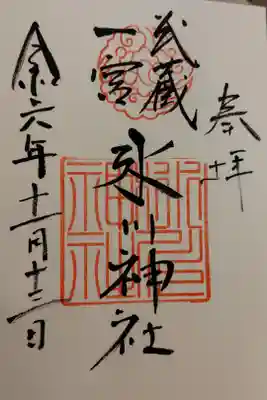 奉拝
武蔵
一宮
氷川神社
令六年十一月十三日
氷川
神社